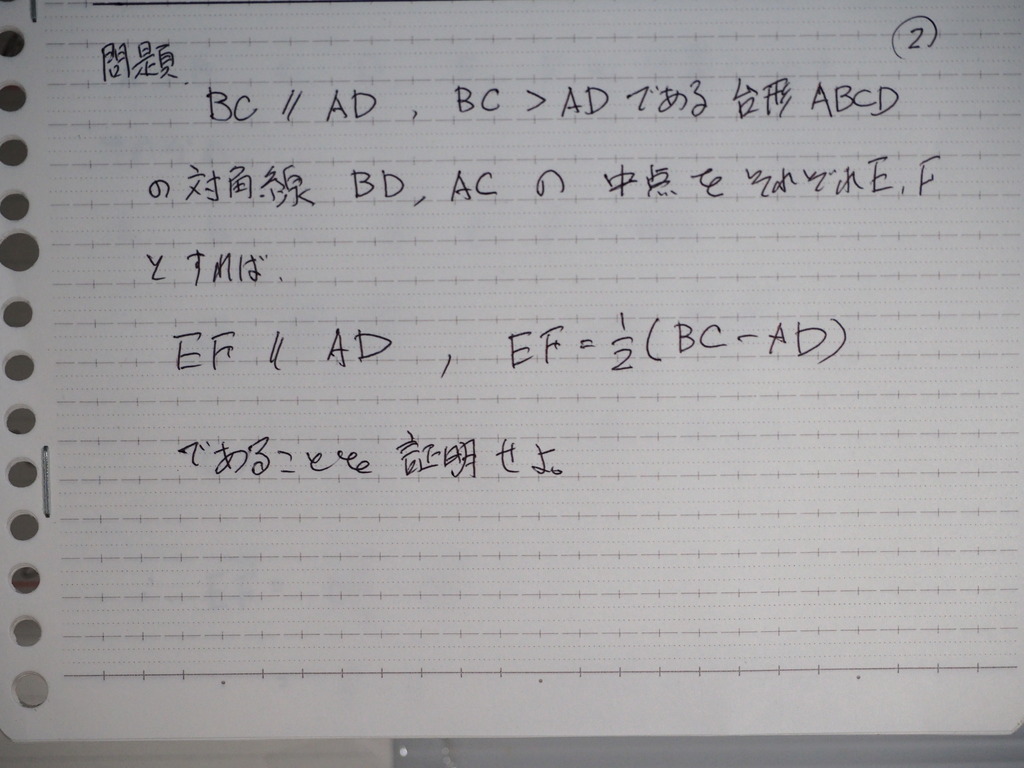 ②
問題.
BC // AD , BC > AD である 台形 ABCD
の対角線 BD, AC の 中点を それぞれ E, F
とすれば.
EF // AD , EF = 1/2 (BC - AD)
であることを 証明せよ。